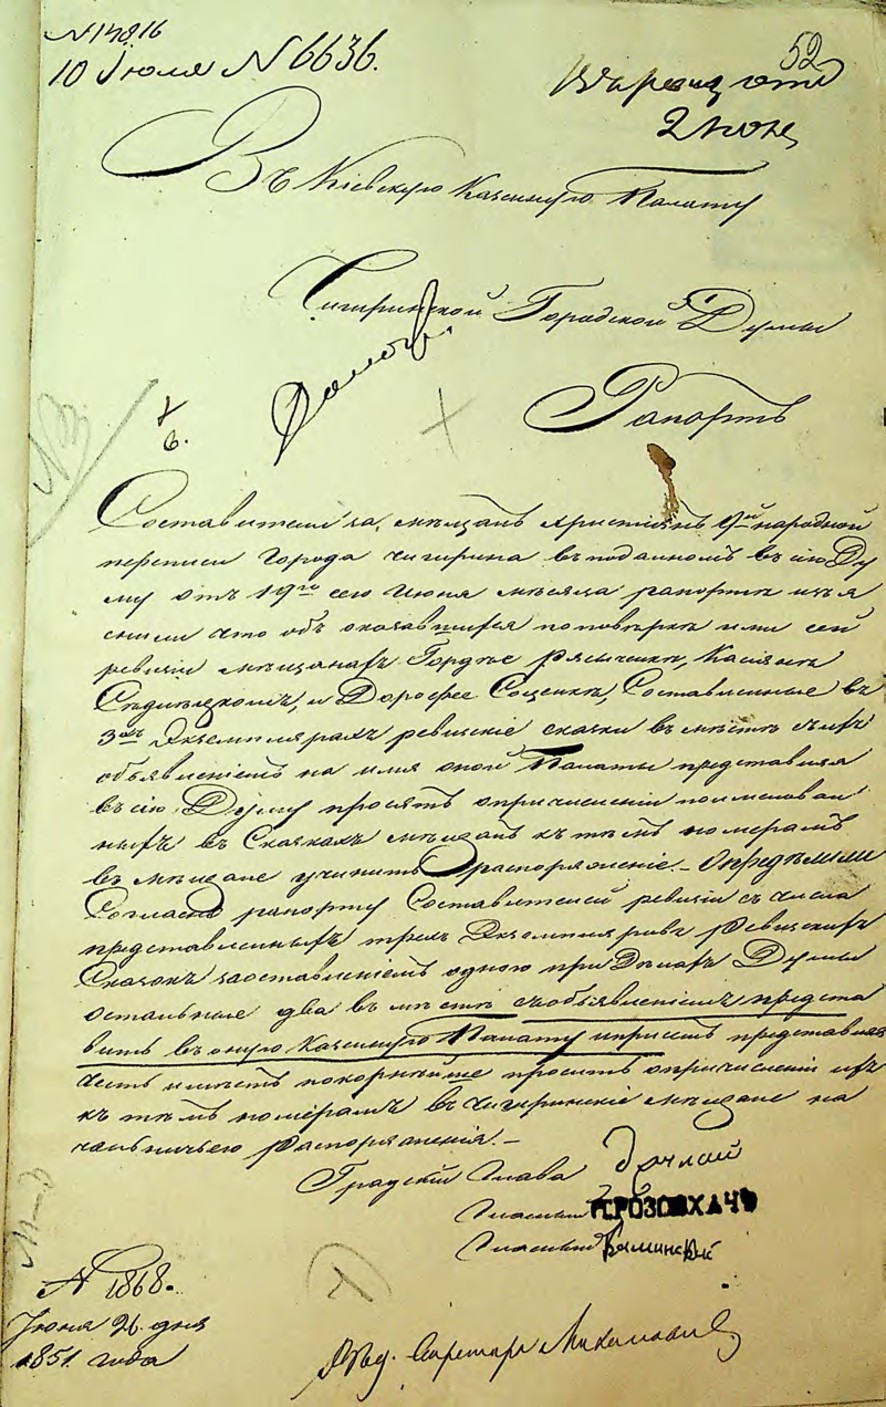 N 14816
52
10 Июля N 6636.
2 июня
Въ Кіевскую Казенную Палату
Чигринской Городской Думы
Рапортъ
6.
Составители мѣщанъ христіянъ 9ой народной
переписи Города Чигрина въ поданномъ въ сію Ду
му отъ 19го сего Июня мѣсяца рапортѣ изъя
снили что объ оказавшихся по повѣркѣ ими сей
ревизіи мѣщанахъ Гордѣе, Касіянѣ
и Дорофее Соценкѣ, Составленные въ
3хъ Экземплярахъ ревизскіе сказки въ мѣстѣ съ
объявленіемъ на имя оной Палаты представляя
въ сію Думу просятъ опричисленіи поименован
ныхъ въ Сказкахъ мѣщанъ къ тѣмъ номерамъ
въ мѣщане учинить распоряженіе. – Опредѣлили
Согласно рапорту Составителей ревизіи съ числа
представленныхъ трехъ Экземпляровъ Ревизскихъ
Сказокъ заоставленіемъ одного при Дѣлахъ Думы
остальные два въ мѣстѣ съобъявленіемъ предста
вить въ оную Казенную Палату и представляя
честь имѣетъ покорнѣйше просить опричисленіи ихъ
къ тѣмъ номерамъ въ Чигринскіе мѣщане на
чальничьего Распоряженія. –
Градскій Глава
Гласный
Гласный
N 1868.
Июня 26 дня
1851 года
Секретарь